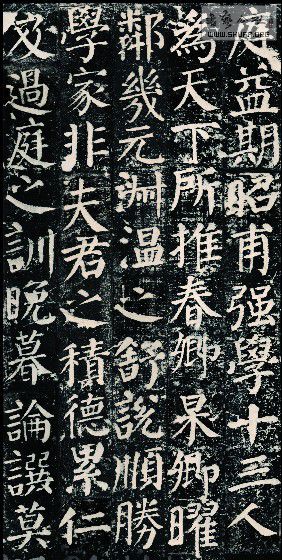 庭益期昭甫强學十三人
為天下所推春卿杲卿曜
鄰幾元淵温之舒說順勝
學家非夫君之積德累仁
及過庭之訓晚暮論譔莫